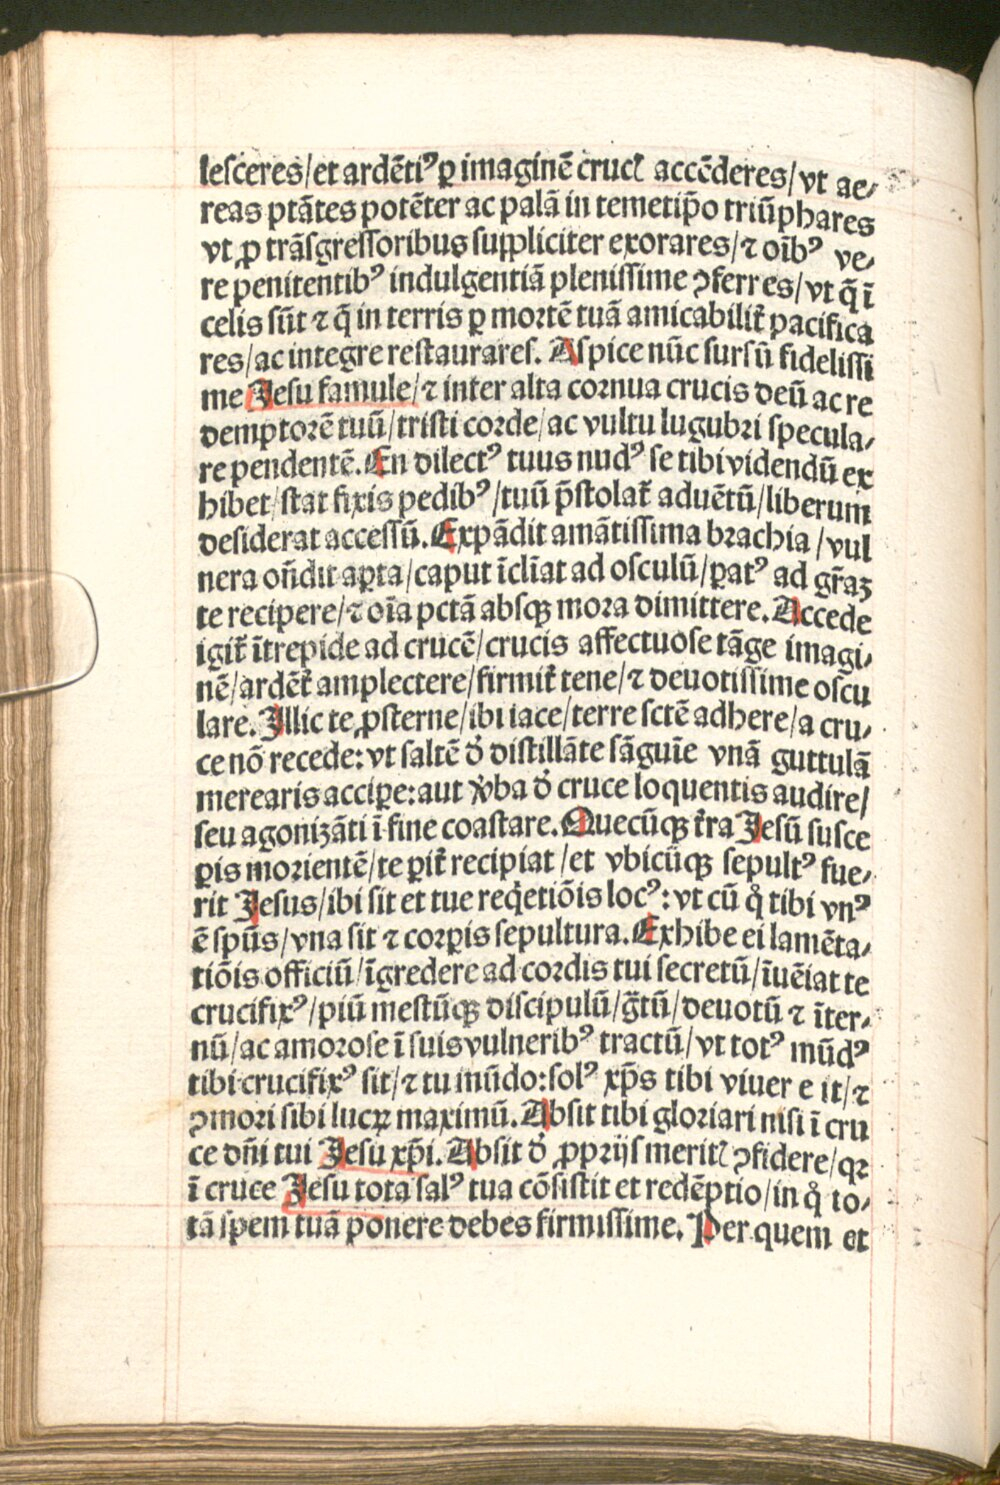 lesceres/et ardētiꝰ ꝑ imaginē crucꝭ accēderes/vt ae⸗
reas ptātes potēter ac palā in temetip̄o triūphares
vt ꝓ trāsgressoribus suppliciter exorares/⁊ oībꝰ ve⸗
re penitentibꝰ indulgentiā plenissime ꝯferres/vt q̄ ī
celis sūt ⁊ q̄ in terris ꝑ mortē tuā amicabilit̄ pacifica
res/ac integre restaurares. Aspice nūc sursū fidelissi
me Jesu famule/⁊ inter alta cornua crucis deū ac re
demptorē tuū/tristi corde/ac vultu lugubri specula⸗
re pendentē. En dilectꝰ tuus nudꝰ se tibi videndū ex
hibet/stat fixis pedibꝰ/tuū p̄stolat̄ aduētū/liberum
desiderat accessū. Expādit amātissima brachia/vul
nera on̄dit aꝑta/caput īcliat̄ ad osculū/ꝑatꝰ ad gr̄aꝫ
te recipere/⁊ oīa pctā absqꝫ mora dimittere. Accede
igit̄ ītrepide ad crucē/crucis affectuose tāge imagi⸗
nē/ardēt̄ amplectere/firmit̄ tene/⁊ deuotissime oscu
lare. Illic te ꝓsterne/ibi iace/terre sctē adhere/a cru⸗
ce nō recede: vt saltē d̓ distillāte sāguīe vnā guttulā
merearis acciꝑe: aut v̓ba d̓ cruce loquentis audire/
seu agonizāti ī fine coastare. Quecūqꝫ t̄ra Jesū susce
ꝑis morientē/te ꝑit̄ recipiat/et vbicūqꝫ sepultꝰ fue⸗
rit Jesus/ibi sit et tue reqͥetiōis locꝰ: vt cū qͦ tibi vnꝰ
ē spūs/vna sit ⁊ corꝑis sepultura. Exhibe ei lamēta⸗
tiōis officiū/īgredere ad cordis tui secretū/īuēiat te
crucifixꝰ/piū mestūqꝫ discipulū/ḡtū/deuotū ⁊ īter⸗
nū/ac amorose ī suis vulneribꝰ tractū/vt totꝰ mūdꝰ
tibi crucifixꝰ sit/⁊ tu mūdo: solꝰ xp̄s tibi viuere it/⁊
ꝯmori sibi lucꝝ maximū. Absit tibi gloriari nisi ī cru
ce dn̄i tui Jesu xp̄i. Absit d̓ ꝓprijs meritꝭ ꝯfidere/qꝛ
ī cruce Jesu tota salꝰ tua cōsistit et redēptio/in qͦ to⸗
tā spem tuā ponere debes firmissime. Per quem et